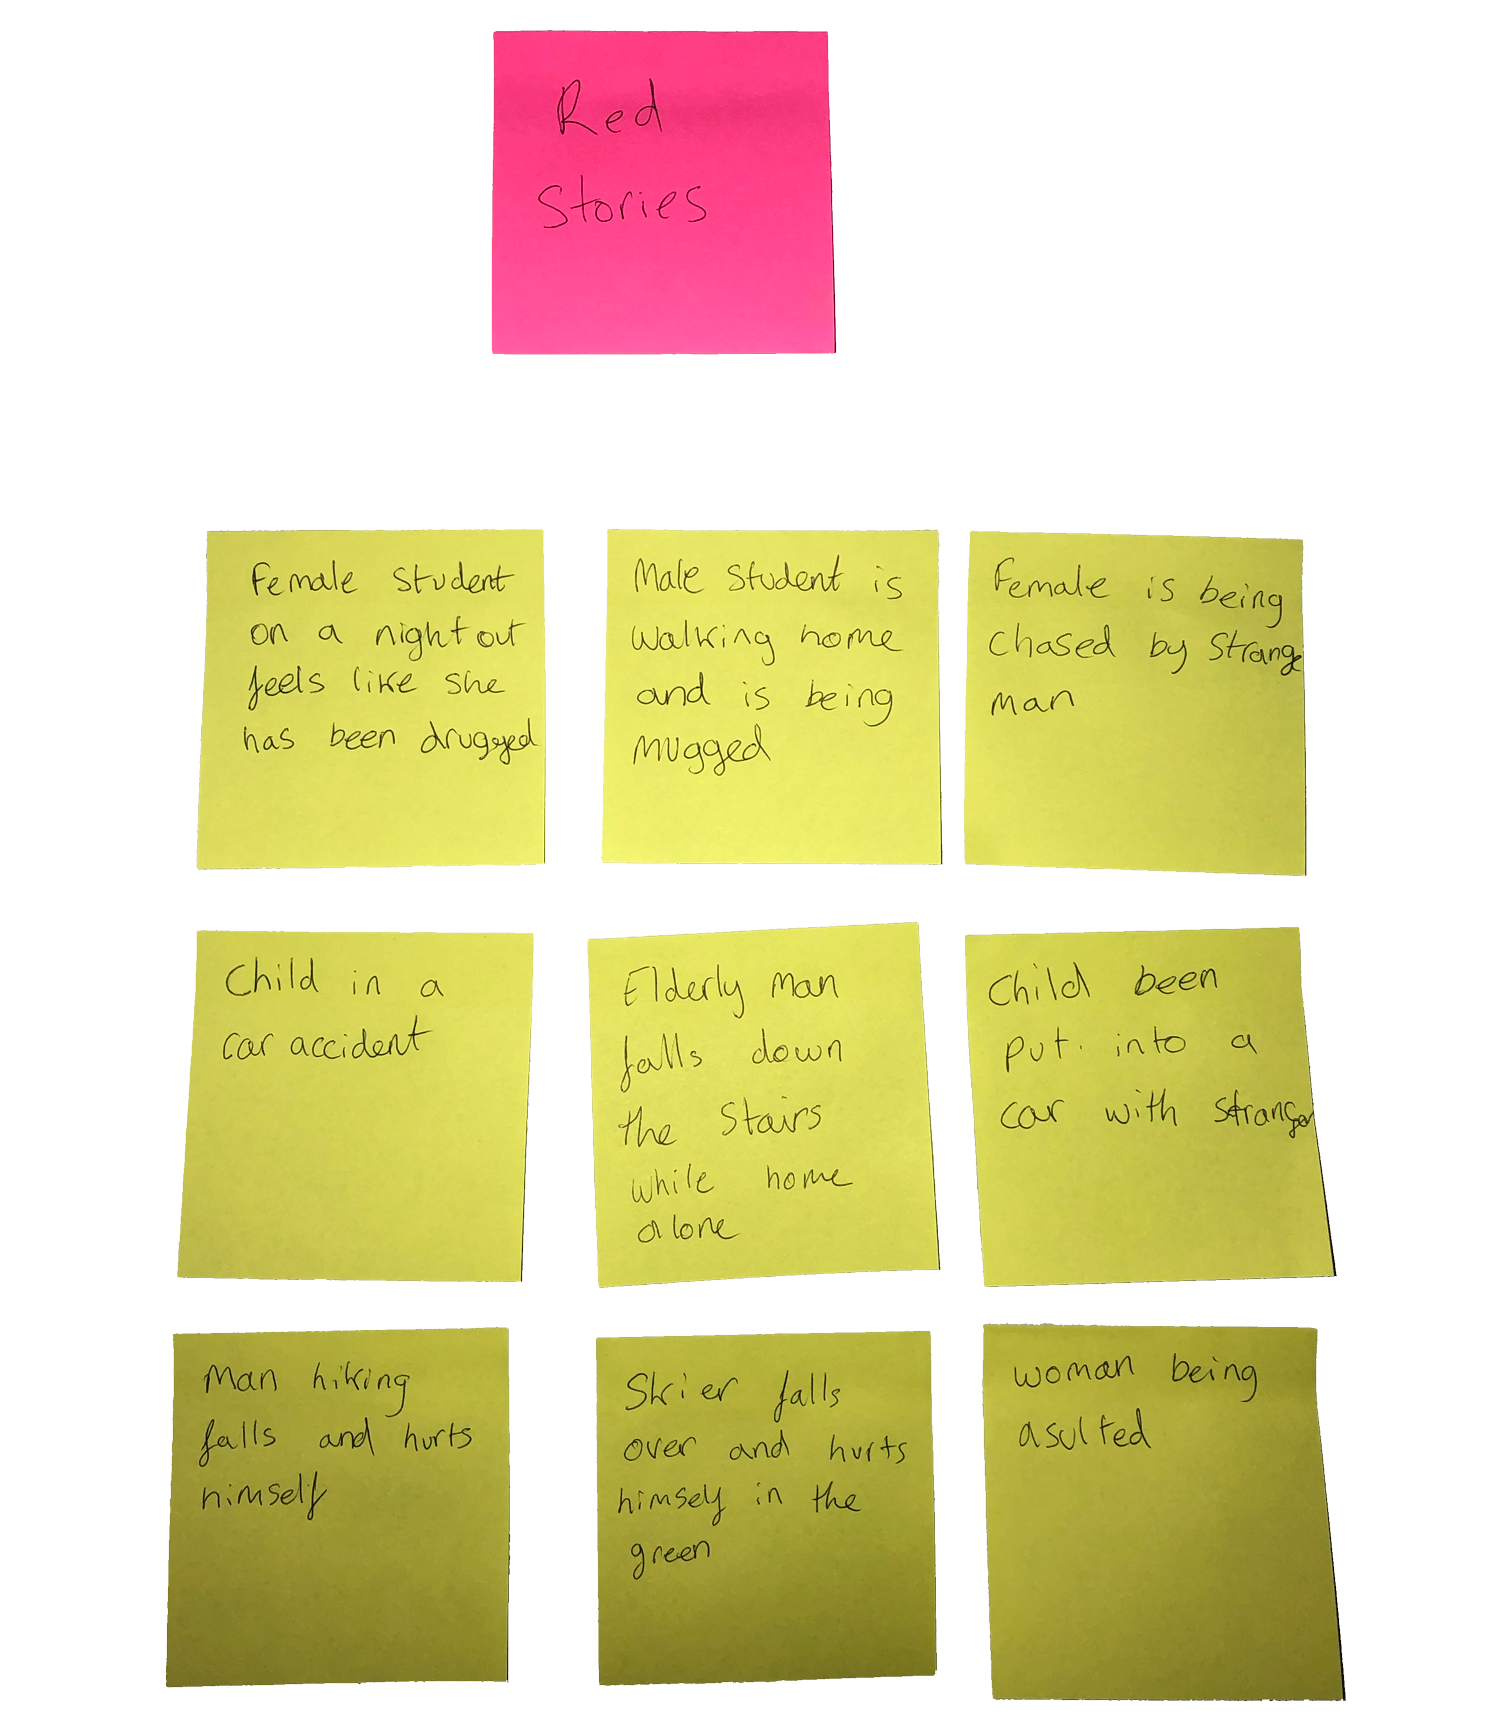 Red
Stories
Female student
on a night out
feels like she
has been drugged
Male student is
walking home
and is being
mugged
Female is being
chased by strange
man
Child in a
car accident
Elderly man
falls down
the stairs
while home
alone
Child been
put into a
car with stranger
Man hiking
falls and hurts
himself
Skier falls
over and hurts
himself in the
green
woman being
asulted